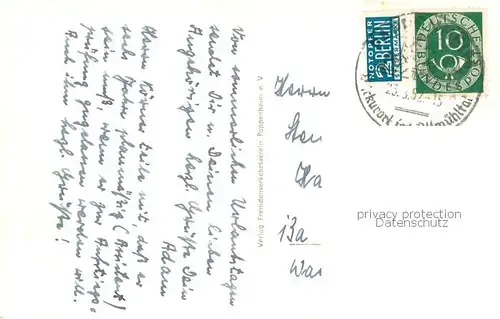 Von sommerlichen Urlaubstagen
sendet Dir u. Deinen lieben
Angehörigen herzl. Grüße Dein
Adam
Herrn Körner teile mit, daß er
sein muß, wenn er zur
prüfung zugelassen werden will.
Auch ihm herzl. Grüße!
Verlag Fremdenverkehrsverein Pappenheim e. V.
Herrn
Ha
Ba
War
NOTOPFER
2 BERLIN
STEUERMARKE
DEUTSCHE
BUNDESPOST
10
Altmühltal
privacy protection
Datenschutz